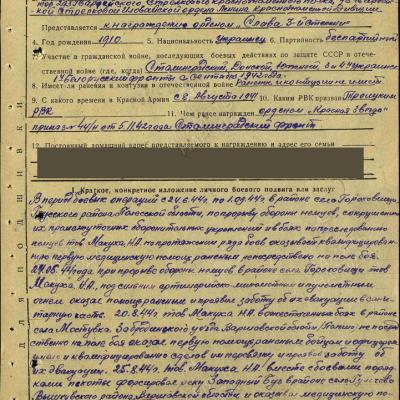 Представляется к награждению орденом „Слава 3-й степени"
4. Год рождения 1910 5. Национальность украинец 6. Партийность беспартийный
7. Участие в гражданской войне, последующих боевых действиях по защите СССР и отече-
ственной войне (где, когда) Сталинградский, Донской, Южный, 3 и 4 Украинск
1 Белорусский фронт с сентября 1942 года.
8. Имеет ли ранения и контузии в отечественной войне Ранений и контузий не имеет.
9. С какого времени в Красной Армии с 8 августа 1941 10. Каким РВК призван Троицким
РВК 11. Чем ранее награжден орденом „Красная Звезда"
приказ № 44/н от 5.11.42 года Сталинградский фронт
12. Постоянный домашний адрес представляемого к награждению и адрес его семьи
Краткое, конкретное изложение личного боевого подвига или заслуг
В период боевых операций с 24.6.44 г. по 1.09.44 г. в районе села Гороховищи
района Полесской области, по прорыву обороны немцев, сокрушению
их промежуточных оборонительных укреплений и в боях по преследованию
немцев тов. Макуха Н.А. на протяжении ряда боев оказывал квалифицирован-
ную первую медицинскую помощь раненым непосредственно на поле боя.
24.06.44 года при прорыве обороны немцев в районе села Гороховищи тов.
Макуха Н.А. под сильным артиллерийско-минометным и пулеметным
огнем оказал помощь раненым и проявил заботу об их эвакуации в сани-
тарную часть. 20.8.44 г. тов. Макуха Н.А. в ожесточенных боях в районе
села Мостувка уезда Варшавской области /Польша/ непосред-
ственно на поле боя оказал первую помощь раненым бойцам и офицерам
умело и квалифицированно сделал им перевязку и проявил заботу об
их эвакуации. 25.8.44 г. тов. Макуха Н.А. вместе с боевыми поряд-
ками пехоты форсировал реку Западный Буг в районе села
Вышкувского района Варшавской области, и оказывал медицинскую по-